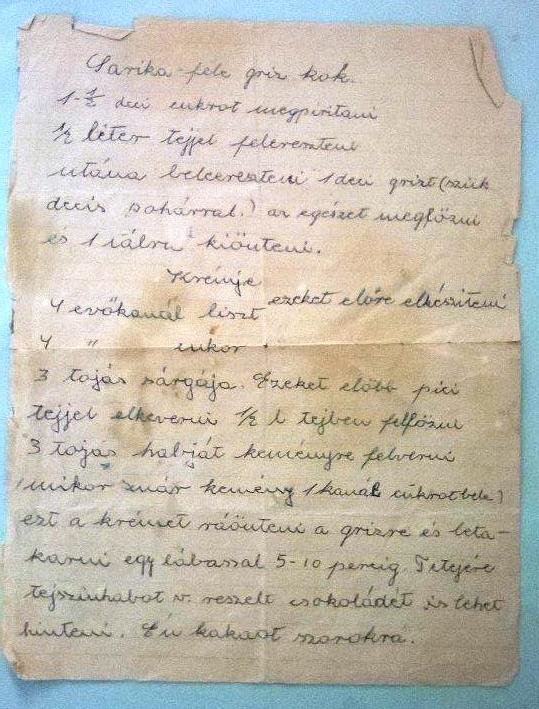 Sarika-féle griz kok.
1-1/2 deci cukrot megpiritani
1/2 liter tejjel felereszteni
utána beleereszteni 1 deci grizt (szük
decis pohárral.) az egészet megfőzni
és 1 tálra kiönteni.
Krémje
4 evőkanál liszt ezeket előre elkésziteni
4 " cukor
3 tojás sárgája. Ezeket előbb pici
tejjel elkeverni 1/2 l tejben felfőzni
3 tojás habját keményre felverni
(mikor már kemény 1 kanál cukrot bele)
ezt a krémet ráönteni a grizre és leta-
karni egy lábassal 5-10 percig. Tetejére
tejszinhabot v. reszelt csokoládét is lehet
hinteni. Én kakaot szorokrá.